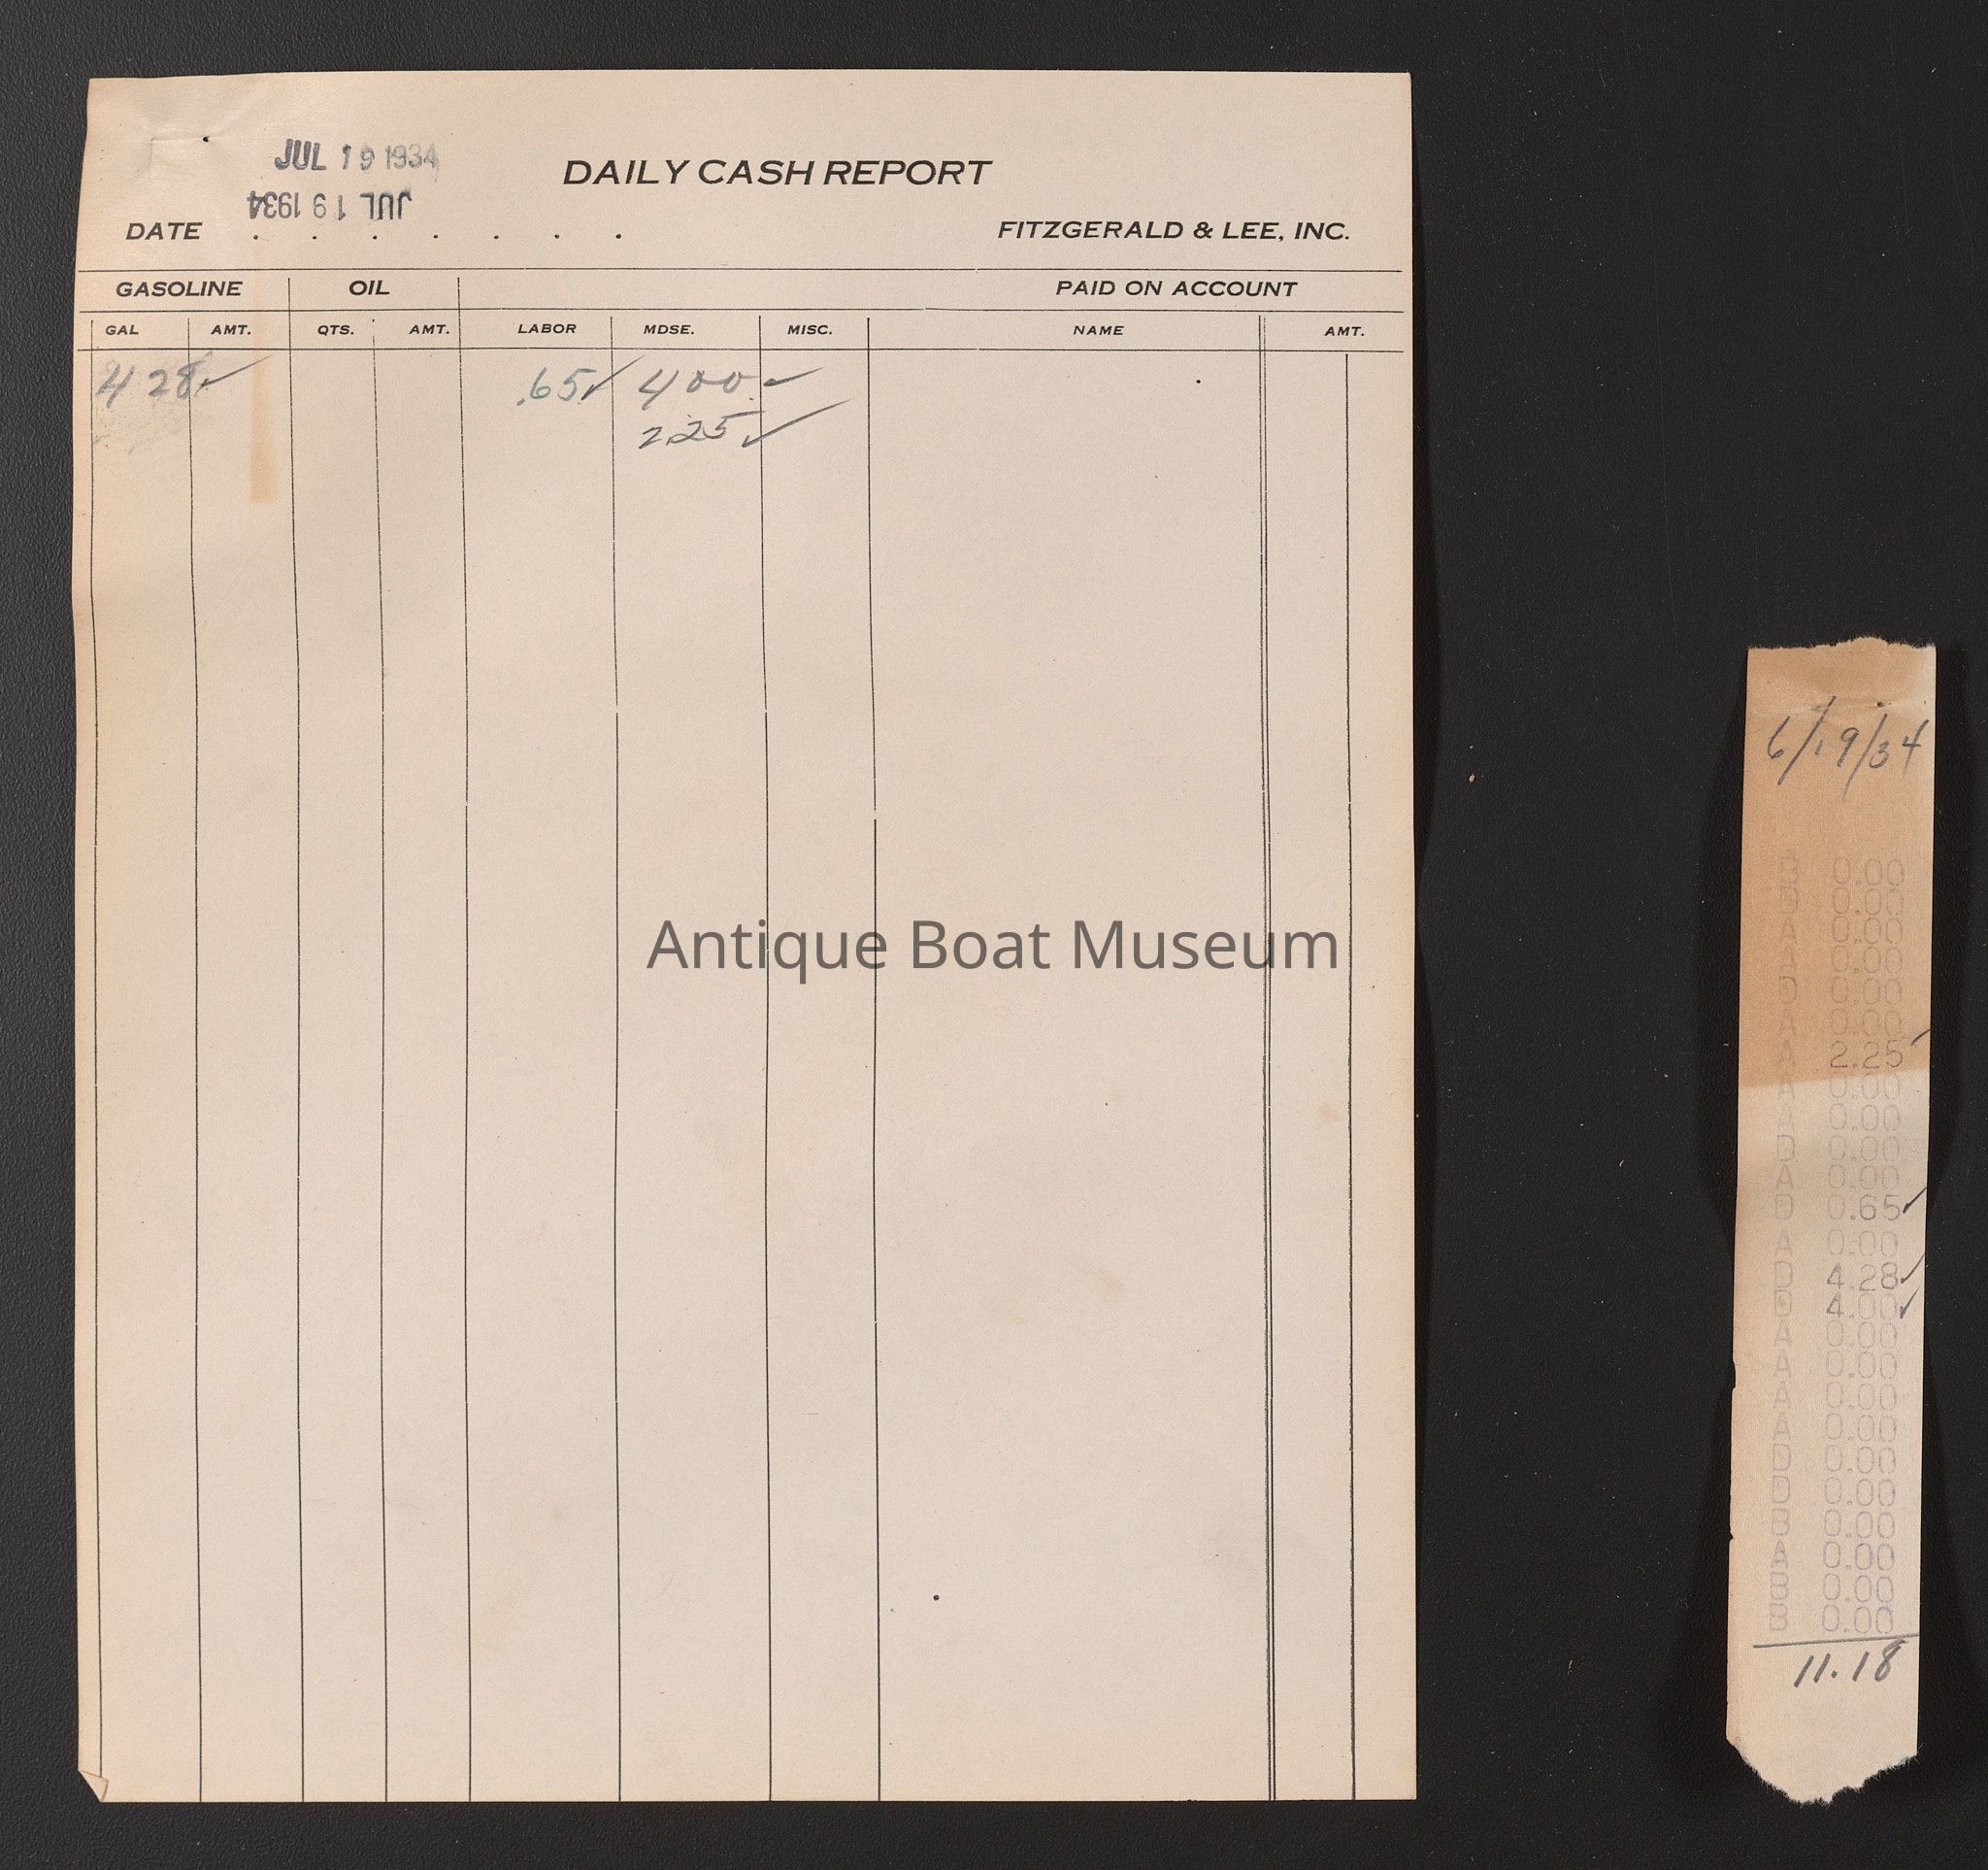 JUL 19 1934
DAILY CASH REPORT
JUL 19 1934
DATE . . . . . . .
FITZGERALD & LEE, INC.
GASOLINE OIL PAID ON ACCOUNT
GAL AMT. QTS. AMT. LABOR MDSE. MISC. NAME AMT.
4 28✓ .65✓ 4 00✓
2.25✓
Antique Boat Museum
6/19/34
B 0.00
B 0.00
A 0.00
A 0.00
D 0.00
A 0.00
A 2.25✓
A 0.00
A 0.00
D 0.00
A 0.00
D 0.65✓
A 0.00
D 4.28✓
D 4.00✓
A 0.00
A 0.00
A 0.00
A 0.00
D 0.00
D 0.00
B 0.00
A 0.00
B 0.00
B 0.00
11.18